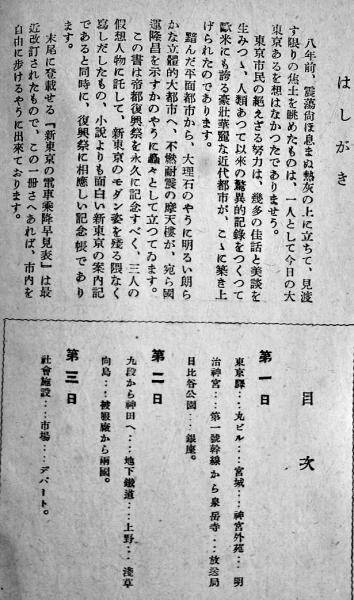 はしがき
八年前、震蕩尙ほ息まぬ熱灰の上に立ちて、見渡
す限りの焦土を眺めたものは、一人として今日の大
東京あるを想はなかつたでありませう。
東京市民の絶えざる努力は、幾多の佳話と美談を
生みつゝ、人類あつて以來の驚異的記錄をつくつて
歐米にも誇る豪壯華麗な近代都市が、こゝに築き上
げられたのであります。
黯んだ平面都市から、大理石のやうに明るい朗ら
かな立體的大都市へ、不燃耐震の摩天樓が、宛ら國
運隆昌を示すかのやうに矗々として立つてゐます。
この書は帝都復興祭を永久に記念すべく、三人の
假想人物に託して、新東京のモダンな姿を殘る隈なく
寫しだしたもの、小說よりも面白い新東京の案内記
であると同時に、復興祭に相應しい記念帳であり
ます。
末尾に登載せる『新東京の電車乘降早見表』は最
近改訂されたもので、この一冊さへあれば、市内を
自由に步けるやうに出來ております。
目次
第一日
東京驛…丸ビル…宮城…神宮外苑…明
治神宮…第一號幹線から泉岳寺…放送局
日比谷公園…銀座。
第二日
九段から神田へ…地下鐵道…上野…淺草
向島…被服廠から兩國。
第三日
社會施設…市場…デパート。